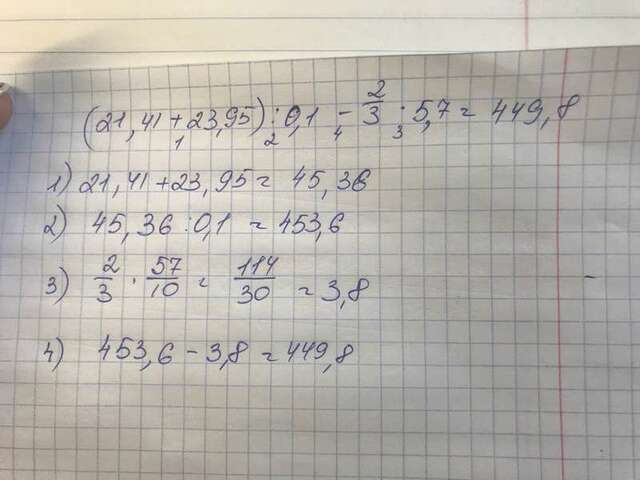 (21,41+23,95):0,1 - 2/3 : 5,7 = 449,8
1 2 4 3
1) 21,41+23,95 = 45,36
2) 45,36 :0,1 = 453,6
3) 2/3 · 57/10 = 114/30 = 3,8
4) 453,6 - 3,8 = 449,8